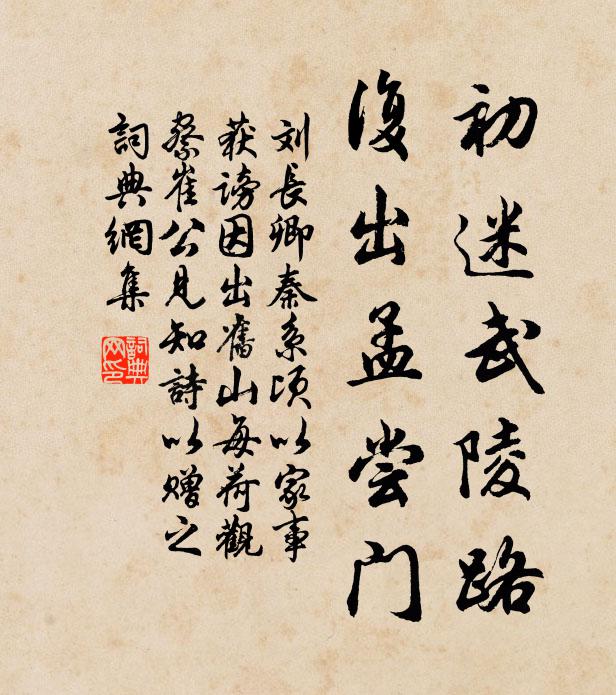 初迷武陵路
復出孟尝门
刘長卿秦系顷以家事
获谤因出舊山每荷觀
察崔公見知詩以赠之
詞典網集
詞典网印